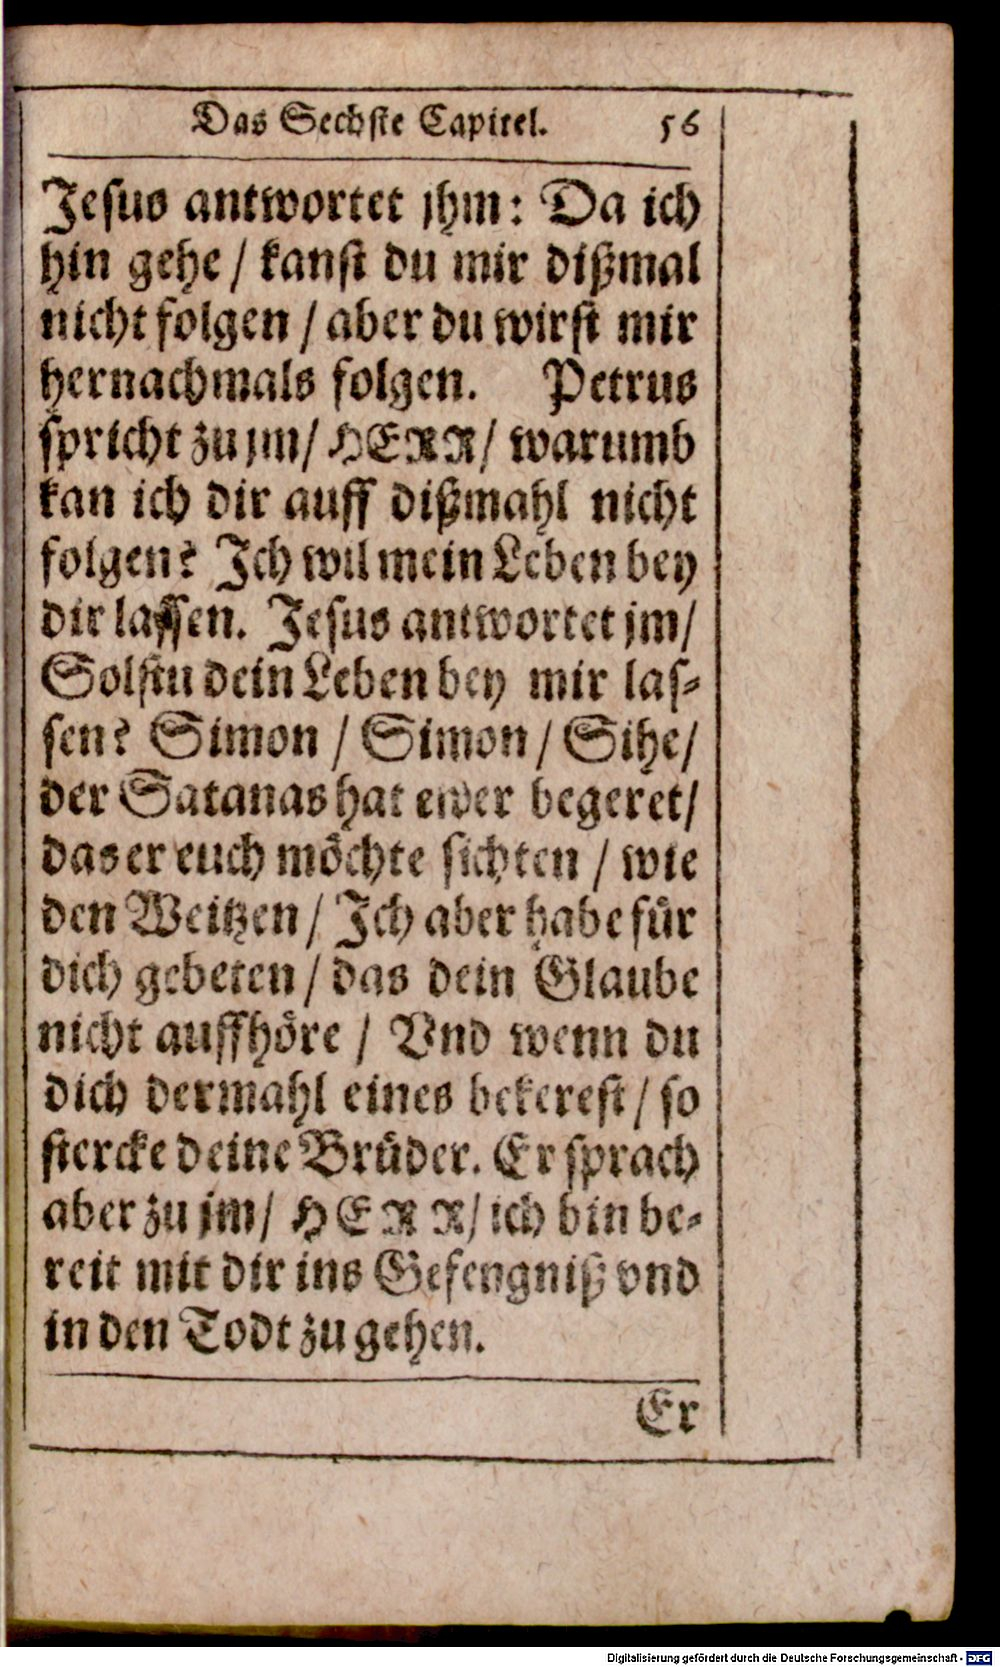 Das Sechste Capitel. 56
Jesus antwortet jhm: Da ich
hin gehe / kanst du mir dißmal
nicht folgen / aber du wirst mir
hernachmals folgen. Petrus
spricht zu jm / HERR / warumb
kan ich dir auff dißmahl nicht
folgen? Ich wil mein Leben bey
dir lassen. Jesus antwortet jm /
Solstu dein Leben bey mir las-
sen? Simon / Simon / Sihe /
der Satanas hat ewer begeret /
das er euch möchte sichten / wie
den Weitzen / Ich aber habe für
dich gebeten / das dein Glaube
nicht auffhöre / Vnd wenn du
dich dermahl eines bekerest / so
stercke deine Brüder. Er sprach
aber zu jm / HERR / ich bin be-
reit mit dir ins Gefengniß vnd
in den Todt zu gehen.
Er
Digitalisierung gefördert durch die Deutsche Forschungsgemeinschaft - DFG